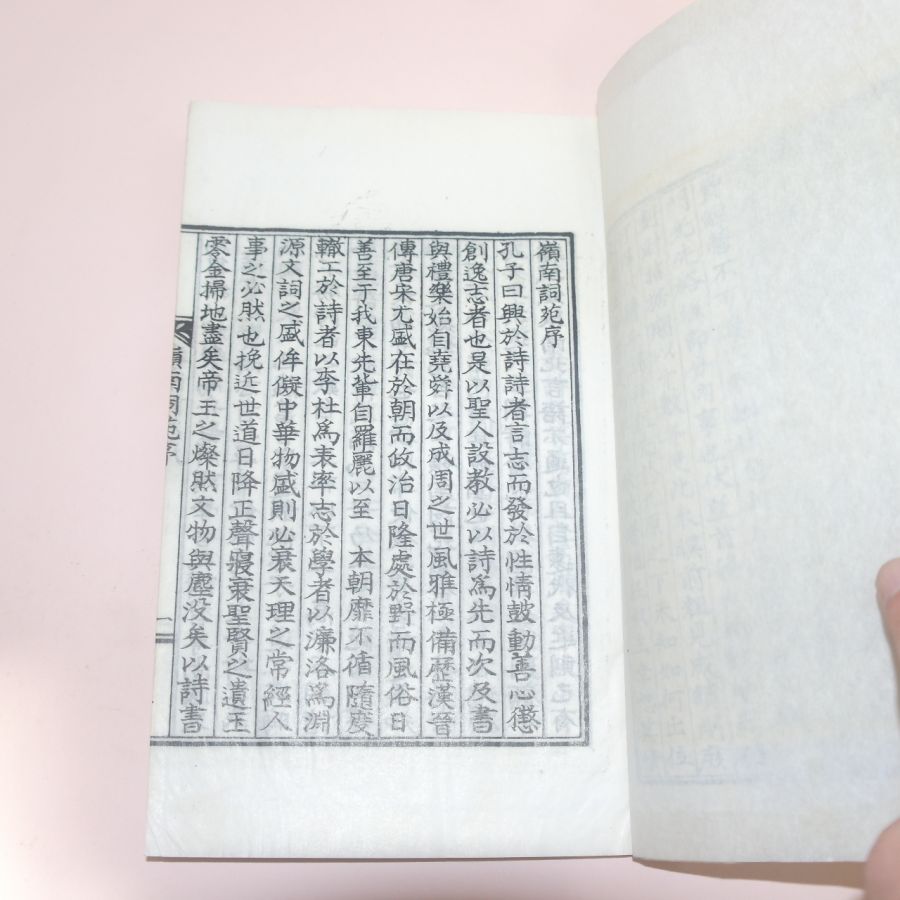 嶺南詞苑序
孔子曰興於詩詩者言志而發於性情鼓動善心懲
創逸志者也是以聖人設教必以詩爲先而次及書
與禮樂始自堯舜以及成周之世風雅極備歷漢晉
傳唐宋尤盛在於朝而政治日隆處於野而風俗日
善至于我東先軰自羅麗以至 本朝靡不循隨度
轍工於詩者以李杜爲表率志於學者以濂洛爲淵
源文詞之盛侔儗中華物盛則必衰天理之常經人
事之必然也挽近世道日降正聲寢衰聖賢之遺玉
零金掃地盡矣帝王之燦然文物與塵没矣以詩書
嶺南詞苑序
一